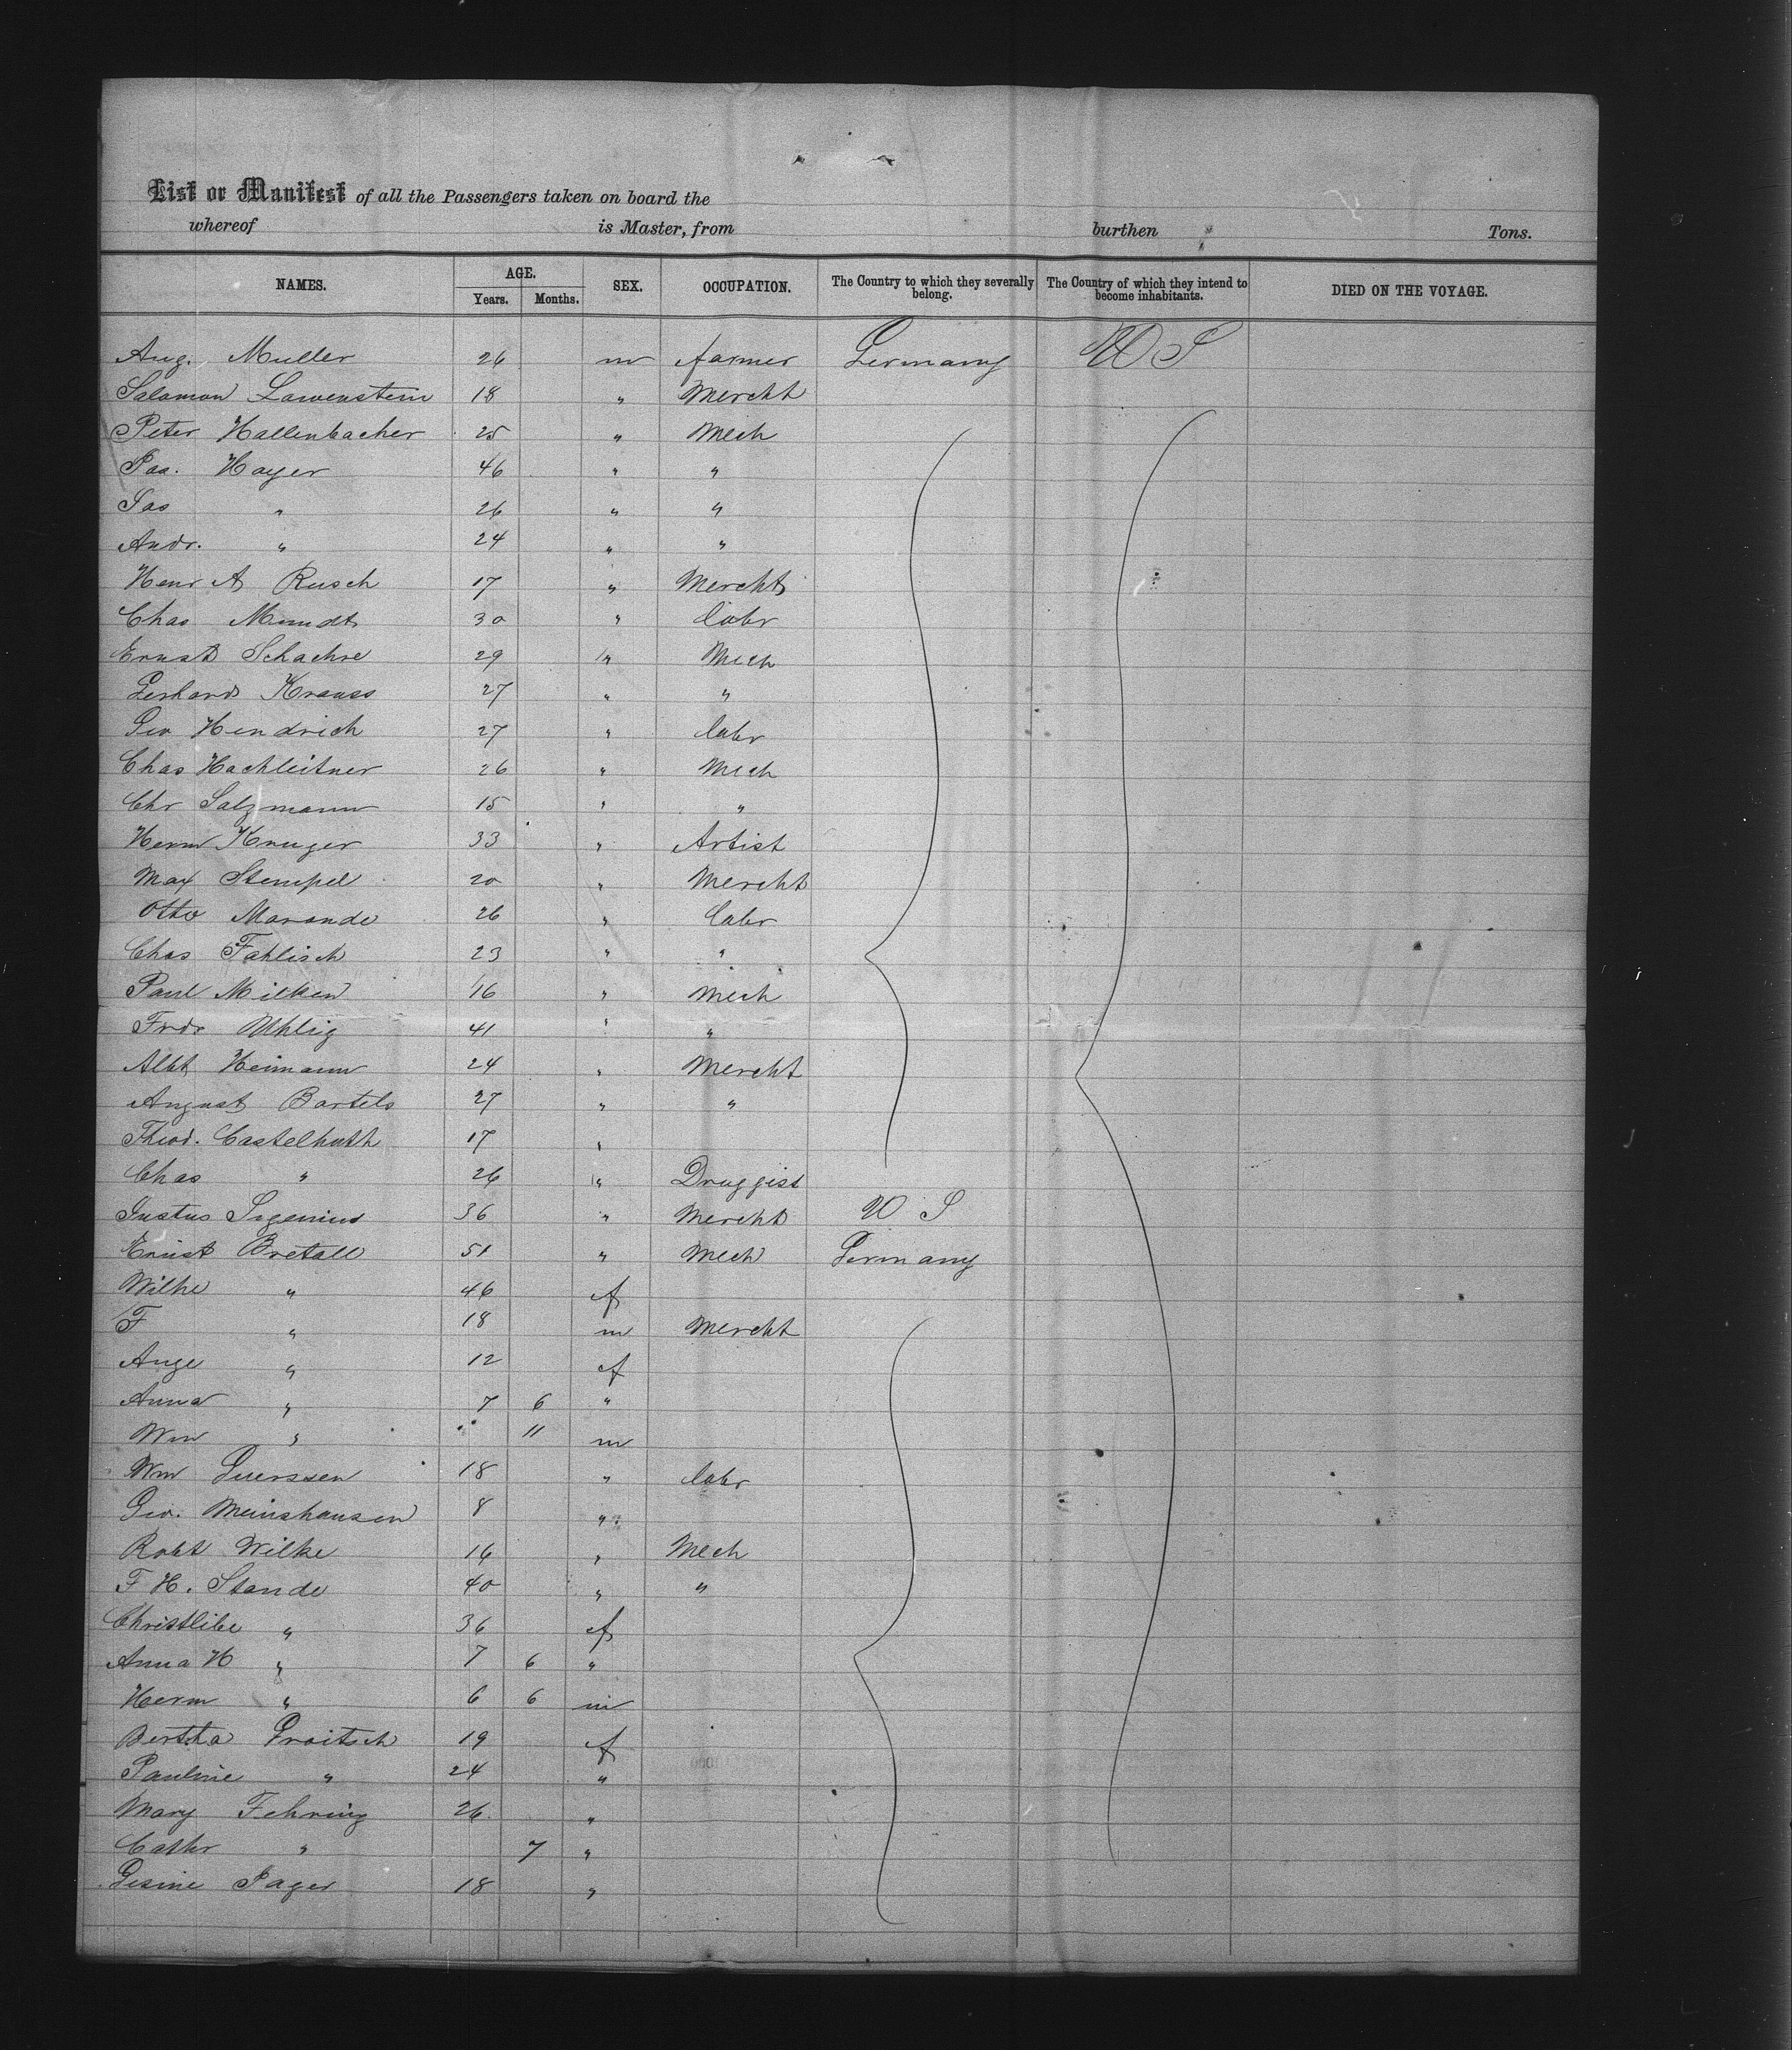 List or Manifest of all the Passengers taken on board the
whereof is Master, from burthen Tons.
NAMES. AGE. Years. Months. SEX. OCCUPATION. The Country to which they severally belong. The Country of which they intend to become inhabitants. DIED ON THE VOYAGE.
Aug. Muller 26 m farmer Germany U S
Salamon Lawenstein 18 " Mercht
Peter Hallenbacher 25 " Mech
Hayer 46 " "
" 26 " "
Andr. " 24 " "
Henr A Rusch 17 " Mercht
Chas Mundt 30 " labr
Ernst Schachre 29 " Mech
Gerhard Krauss 27 " "
Geo Hendrich 27 " labr
Chas Hachleitner 26 " Mech
Chr Salzmann 15 " "
Herm Kruger 33 " Artist
Max Stempel 20 " Mercht
Otto Marande 26 " labr
Chas Fahlisch 23 " "
Paul Milken 16 " Mech
Frdr Uhlig 41 " "
Albt Heimann 24 " Mercht
August Bartels 27 " "
Theod. Castelhuth 17 "
Chas " 26 " Druggist
Justus 36 " Mercht U S
Ernst Bretall 51 " Mech Germany
Wilhe " 46 f
F " 18 m Mercht
Auge " 12 f
Anna " 7 6 "
Wm " " 11 m
Wm Luerssen 18 " labr
Geo. Meinshausen 8 "
Robt Wilke 16 " Mech
F H. Stande 40 " "
Christlibe " 36 f
Anna H " 7 6 "
Herm " 6 6 m
Bertha Proitsch 19 f
Pauline " 24 "
Mary Fehring 26 "
Cathr " 7 "
Gesine Jager 18 "